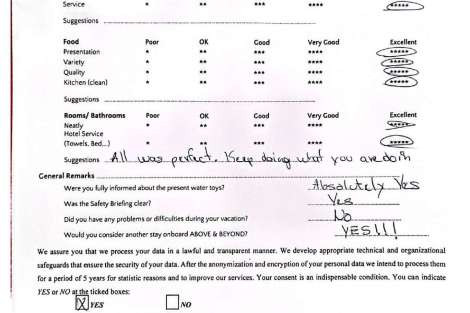 Service * ** *** **** *****
Suggestions
Food Poor OK Good Very Good Excellent
Presentation * ** *** **** *****
Variety * ** *** **** *****
Quality * ** *** **** *****
Kitchen (clean) * ** *** **** *****
Suggestions
Rooms/ Bathrooms Poor OK Good Very Good Excellent
Neatly * ** *** **** *****
Hotel Service
(Towels, Bed...) * ** *** **** *****
Suggestions All was perfect. Keep doing what you are doin
General Remarks
Were you fully informed about the present water toys? Absolutely Yes
Was the Safety Briefing clear? Yes
Did you have any problems or difficulties during your vacation? No
Would you consider another stay onboard ABOVE & BEYOND? YES!!!
We assure you that we process your data in a lawful and transparent manner. We develop appropriate technical and organizational
safeguards that ensure the security of your data. After the anonymization and encryption of your personal data we intend to process them
for a period of 5 years for statistic reasons and to improve our services. Your consent is an indispensable condition. You can indicate
YES or NO at the ticked boxes:
X YES NO